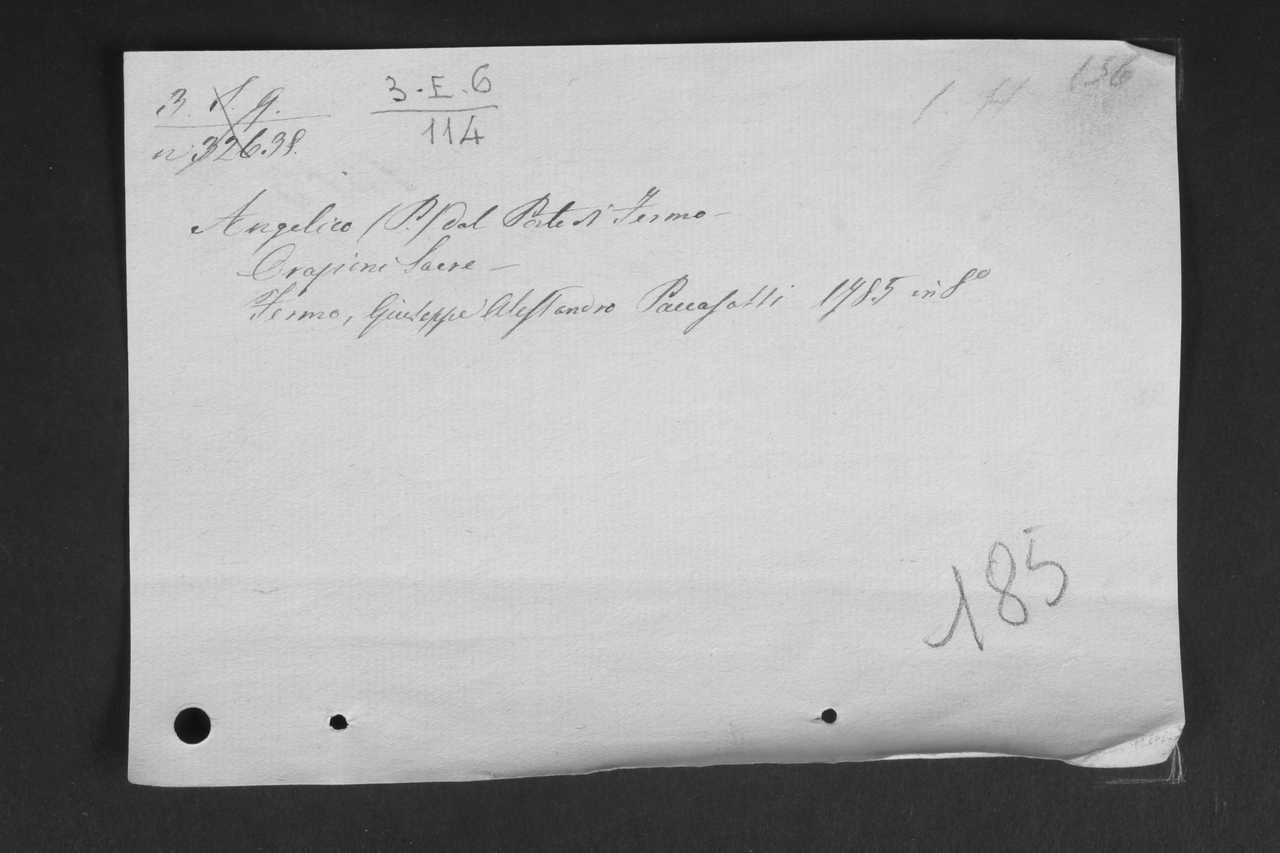 3. S. 9.
3-E.6
n. 326.38.
114
Angelico (P.) dal Porte di Fermo-
Orazioni Sacre-
Fermo, Giuseppe Alessandro Paccasassi 1785 in 8º
185